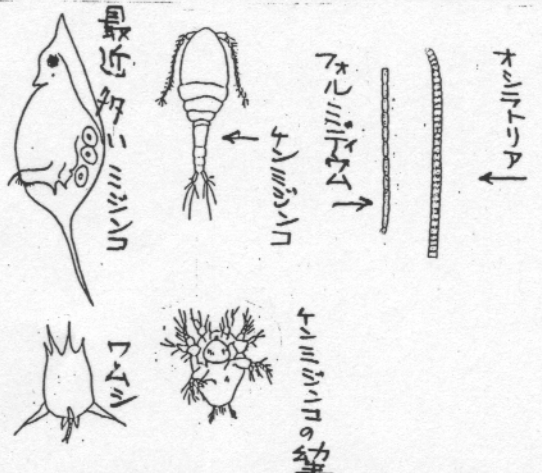 オシラトリア
フォルミディウム
ケンミジンコ
最近多いミジンコ
ケンミジンコの幼生
ワムシ